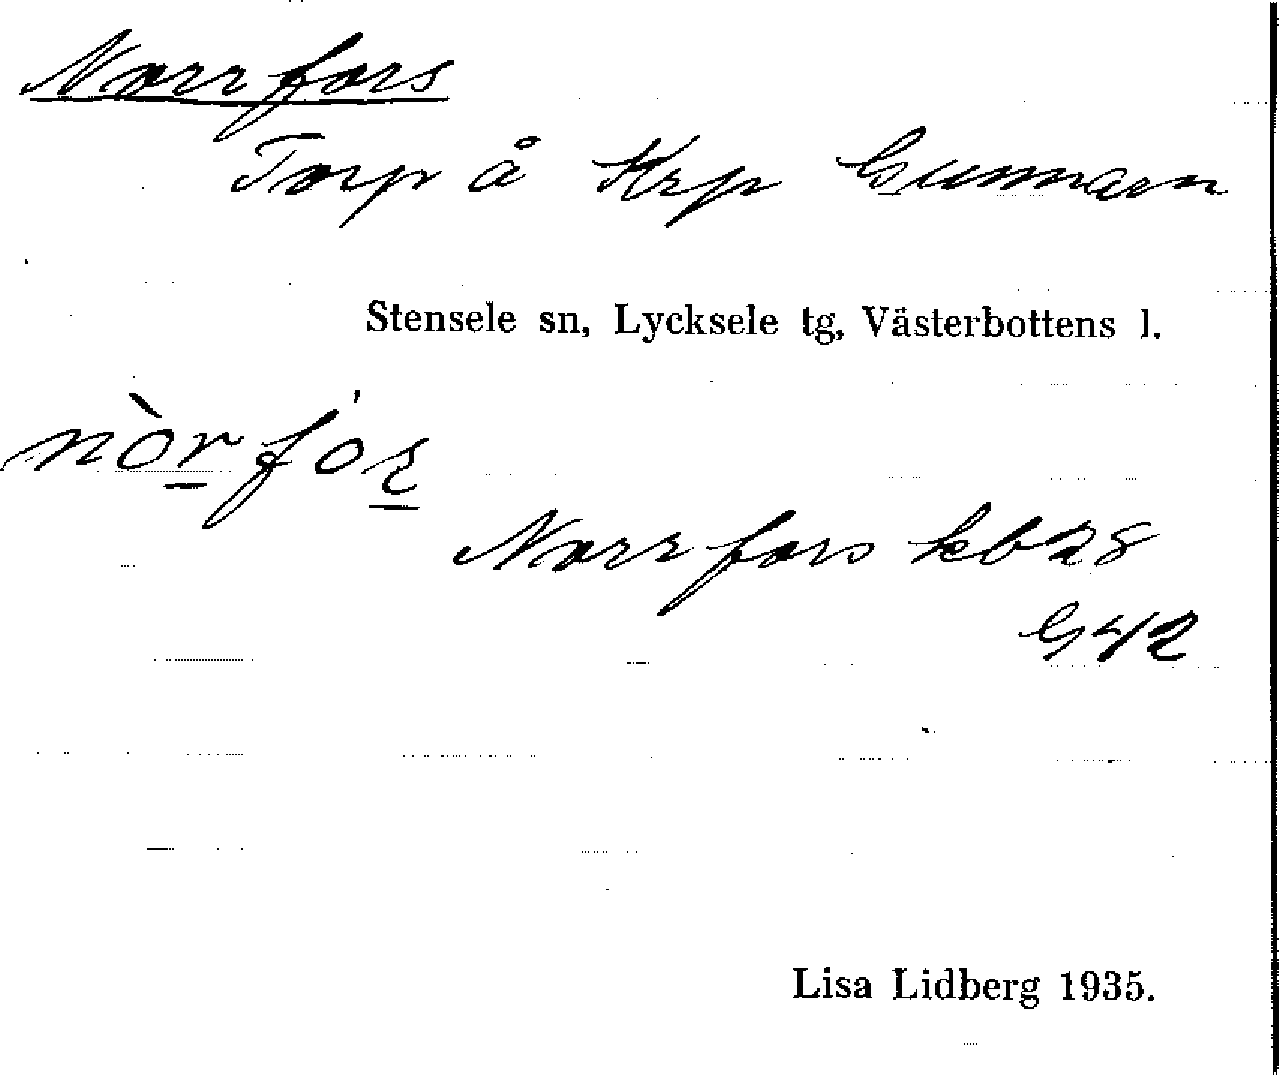 Norrfors
Torp å Krp Gunnarn
Stensele sn, Lycksele tg, Västerbottens l.
Norrfors kb 28
G42
Lisa Lidberg 1935.